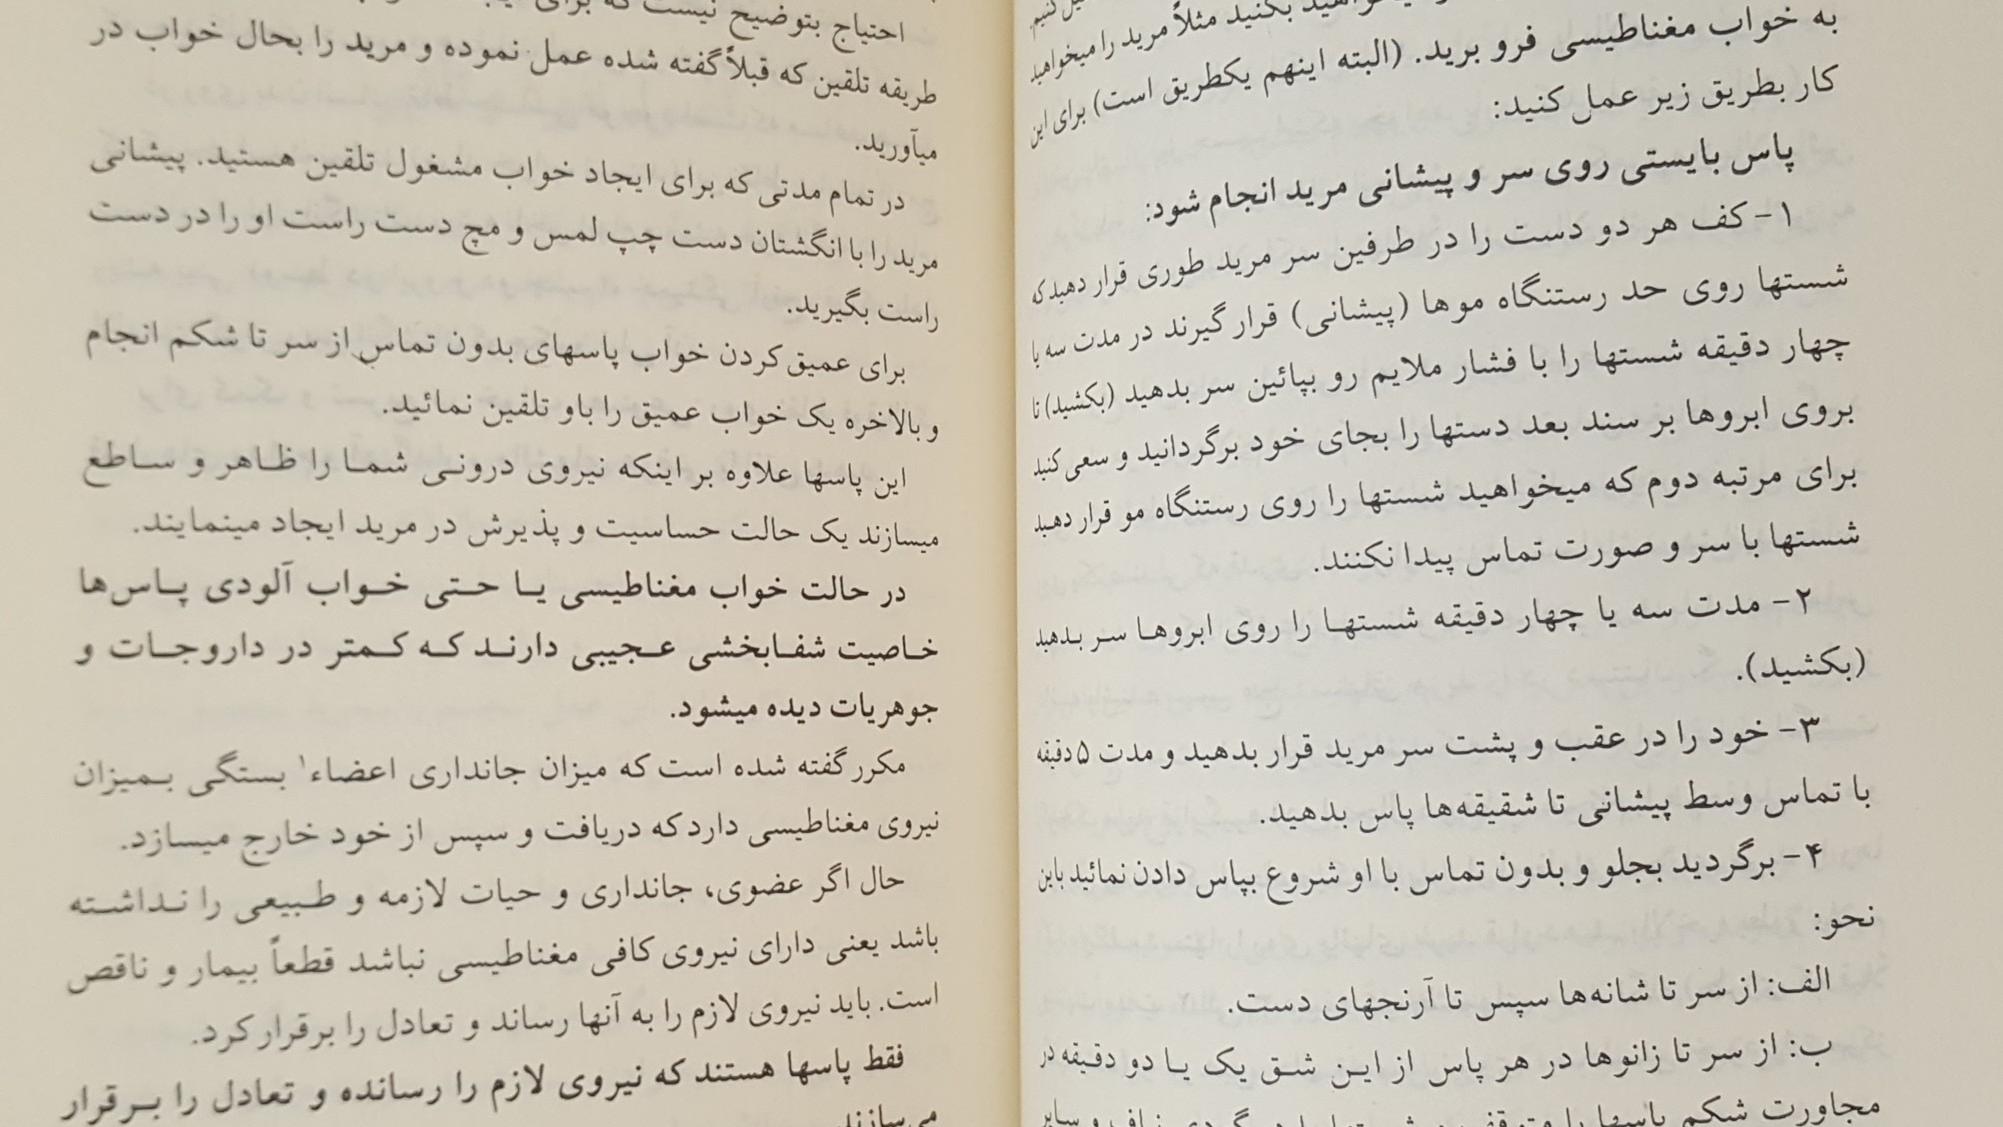 بکنید مثلاً مرید را میخواهید
به خواب مغناطیسی فرو برید. (البته اینهم یکطریق است) برای این
کار بطریق زیر عمل کنید:
پاس بایستی روی سر و پیشانی مرید انجام شود:
۱- کف هر دو دست را در طرفین سر مرید طوری قرار دهید که
شستها روی حد رستنگاه موها (پیشانی) قرار گیرند در مدت سه یا
چهار دقیقه شستها را با فشار ملایم رو بپائین سر بدهید (بکشید) تا
بروی ابروها بر سند بعد دستها را بجای خود برگردانید و سعی کنید
برای مرتبه دوم که میخواهید شستها را روی رستنگاه مو قرار دهید
شستها با سر و صورت تماس پیدا نکنند.
۲- مدت سه یا چهار دقیقه شستها را روی ابروها سر بدهید
(بکشید).
۳- خود را در عقب و پشت سر مرید قرار بدهید و مدت ۵ دقیقه
با تماس وسط پیشانی تا شقیقه‌ها پاس بدهید.
۴- برگردید بجلو و بدون تماس با او شروع بپاس دادن نمائید باین
نحو:
الف: از سر تا شانه‌ها سپس تا آرنجهای دست.
ب: از سر تا زانوها در هر پاس از این شق یک یا دو دقیقه در
مجاورت شکم پاسها را
احتیاج بتوضیح نیست که برای
طریقه تلقین که قبلاً گفته شده عمل نموده و مرید را بحال خواب در
میآورید.
در تمام مدتی که برای ایجاد خواب مشغول تلقین هستید. پیشانی
مرید را با انگشتان دست چپ لمس و مچ دست راست او را در دست
راست بگیرید.
برای عمیق کردن خواب پاسهای بدون تماس از سر تا شکم انجام
و بالاخره یک خواب عمیق را باو تلقین نمائید.
این پاسها علاوه بر اینکه نیروی درونی شما را ظاهر و ساطع
میسازند یک حالت حساسیت و پذیرش در مرید ایجاد مینمایند.
در حالت خواب مغناطیسی یا حتی خواب آلودی پاس‌ها
خاصیت شفابخشی عجیبی دارند که کمتر در داروجات و
جوهریات دیده میشود.
مکرر گفته شده است که میزان جانداری اعضاء۱ بستگی بمیزان
نیروی مغناطیسی دارد که دریافت و سپس از خود خارج میسازد.
حال اگر عضوی، جانداری و حیات لازمه و طبیعی را نداشته
باشد یعنی دارای نیروی کافی مغناطیسی نباشد قطعاً بیمار و ناقص
است. باید نیروی لازم را به آنها رساند و تعادل را برقرار کرد.
فقط پاسها هستند که نیروی لازم را رسانده و تعادل را برقرار
می‌سازند